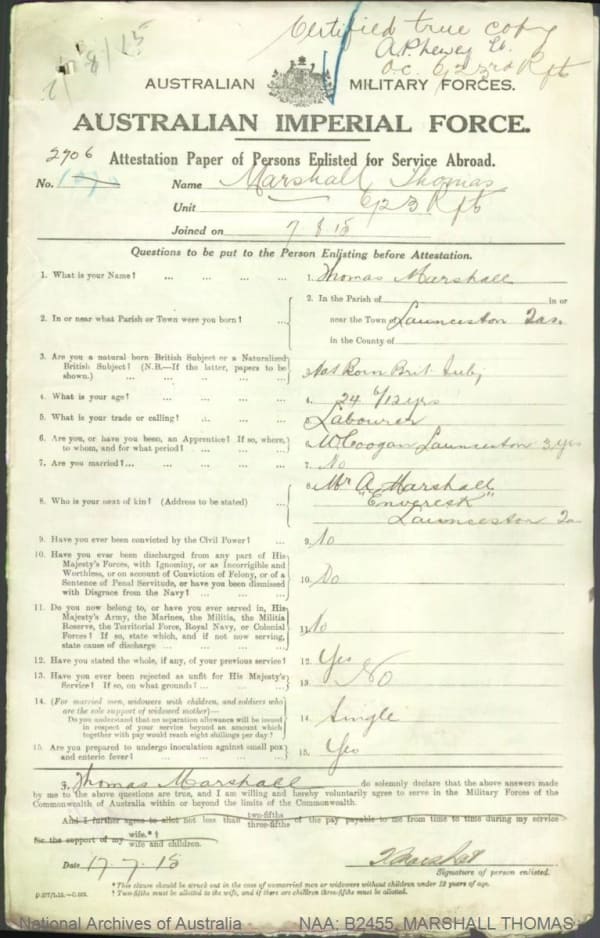 Certified true copy
A.P. Lt.
O.C. 6/23rd Rfts
AUSTRALIAN MILITARY FORCES.
AUSTRALIAN IMPERIAL FORCE.
2706 Attestation Paper of Persons Enlisted for Service Abroad.
No. Name Marshall Thomas
Unit 6/23 Rfts
Joined on 7 8 15
Questions to be put to the Person Enlisting before Attestation.
1. What is your Name? ... ... ... ... 1. Thomas Marshall
2. In or near what Parish or Town were you born? ...
2. In the Parish of in or
near the Town of Launceston Tas.
in the County of
3. Are you a natural born British Subject or a Naturalised
British Subject? (N.B.—If the latter, papers to be
shown.) ... ... ... ... ...
Nat Born Brit Subj
4. What is your age? ... ... ... ... 4. 24 6/12 yrs
5. What is your trade or calling? ... ... ... 5. Labourer
6. Are you, or have you been, an Apprentice? If so, where,
to whom, and for what period? ... ... ...
6. Coogan Launceston 3 yrs
7. Are you married?... ... ... ... ... 7. No
8. Who is your next of kin? (Address to be stated) ...
8. Mr A. Marshall
"Enveresk"
Launceston Tas
9. Have you ever been convicted by the Civil Power? ... 9. No
10. Have you ever been discharged from any part of His
Majesty's Forces, with Ignominy, or as Incorrigible and
Worthless, or on account of Conviction of Felony, or of a
Sentence of Penal Servitude, or have you been dismissed
with Disgrace from the Navy? ... ... ...
10. Do
11. Do you now belong to, or have you ever served in, His
Majesty's Army, the Marines, the Militia, the Militia
Reserve, the Territorial Force, Royal Navy, or Colonial
Forces? If so, state which, and if not now serving,
state cause of discharge ... ... ... ...
11. No
12. Have you stated the whole, if any, of your previous service? 12. Yes
13. Have you ever been rejected as unfit for His Majesty's
Service? If so, on what grounds? ... ... ...
13. No
14. (For married men, widowers with children, and soldiers who
are the sole support of widowed mother)—
Do you understand that no separation allowance will be issued
in respect of your service beyond an amount which
together with pay would reach eight shillings per day?
14. Single
15. Are you prepared to undergo inoculation against small pox
and enteric fever? ... ... ... ...
15. Yes
I, Thomas Marshall do solemnly declare that the above answers made
by me to the above questions are true, and I am willing and hereby voluntarily agree to serve in the Military Forces of the
Commonwealth of Australia within or beyond the limits of the Commonwealth.
And I further agree to allot not less than two-fifths three-fifths of the pay payable to me from time to time during my service
for the support of my wife.*† wife and children.
Date 17.7.15 T Marshall
Signature of person enlisted.
* This clause should be struck out in the case of unmarried men or widowers without children under 18 years of age.
† Two-fifths must be allotted to the wife, and if there are children three-fifths must be allotted.
National Archives of Australia NAA: B2455, MARSHALL THOMAS